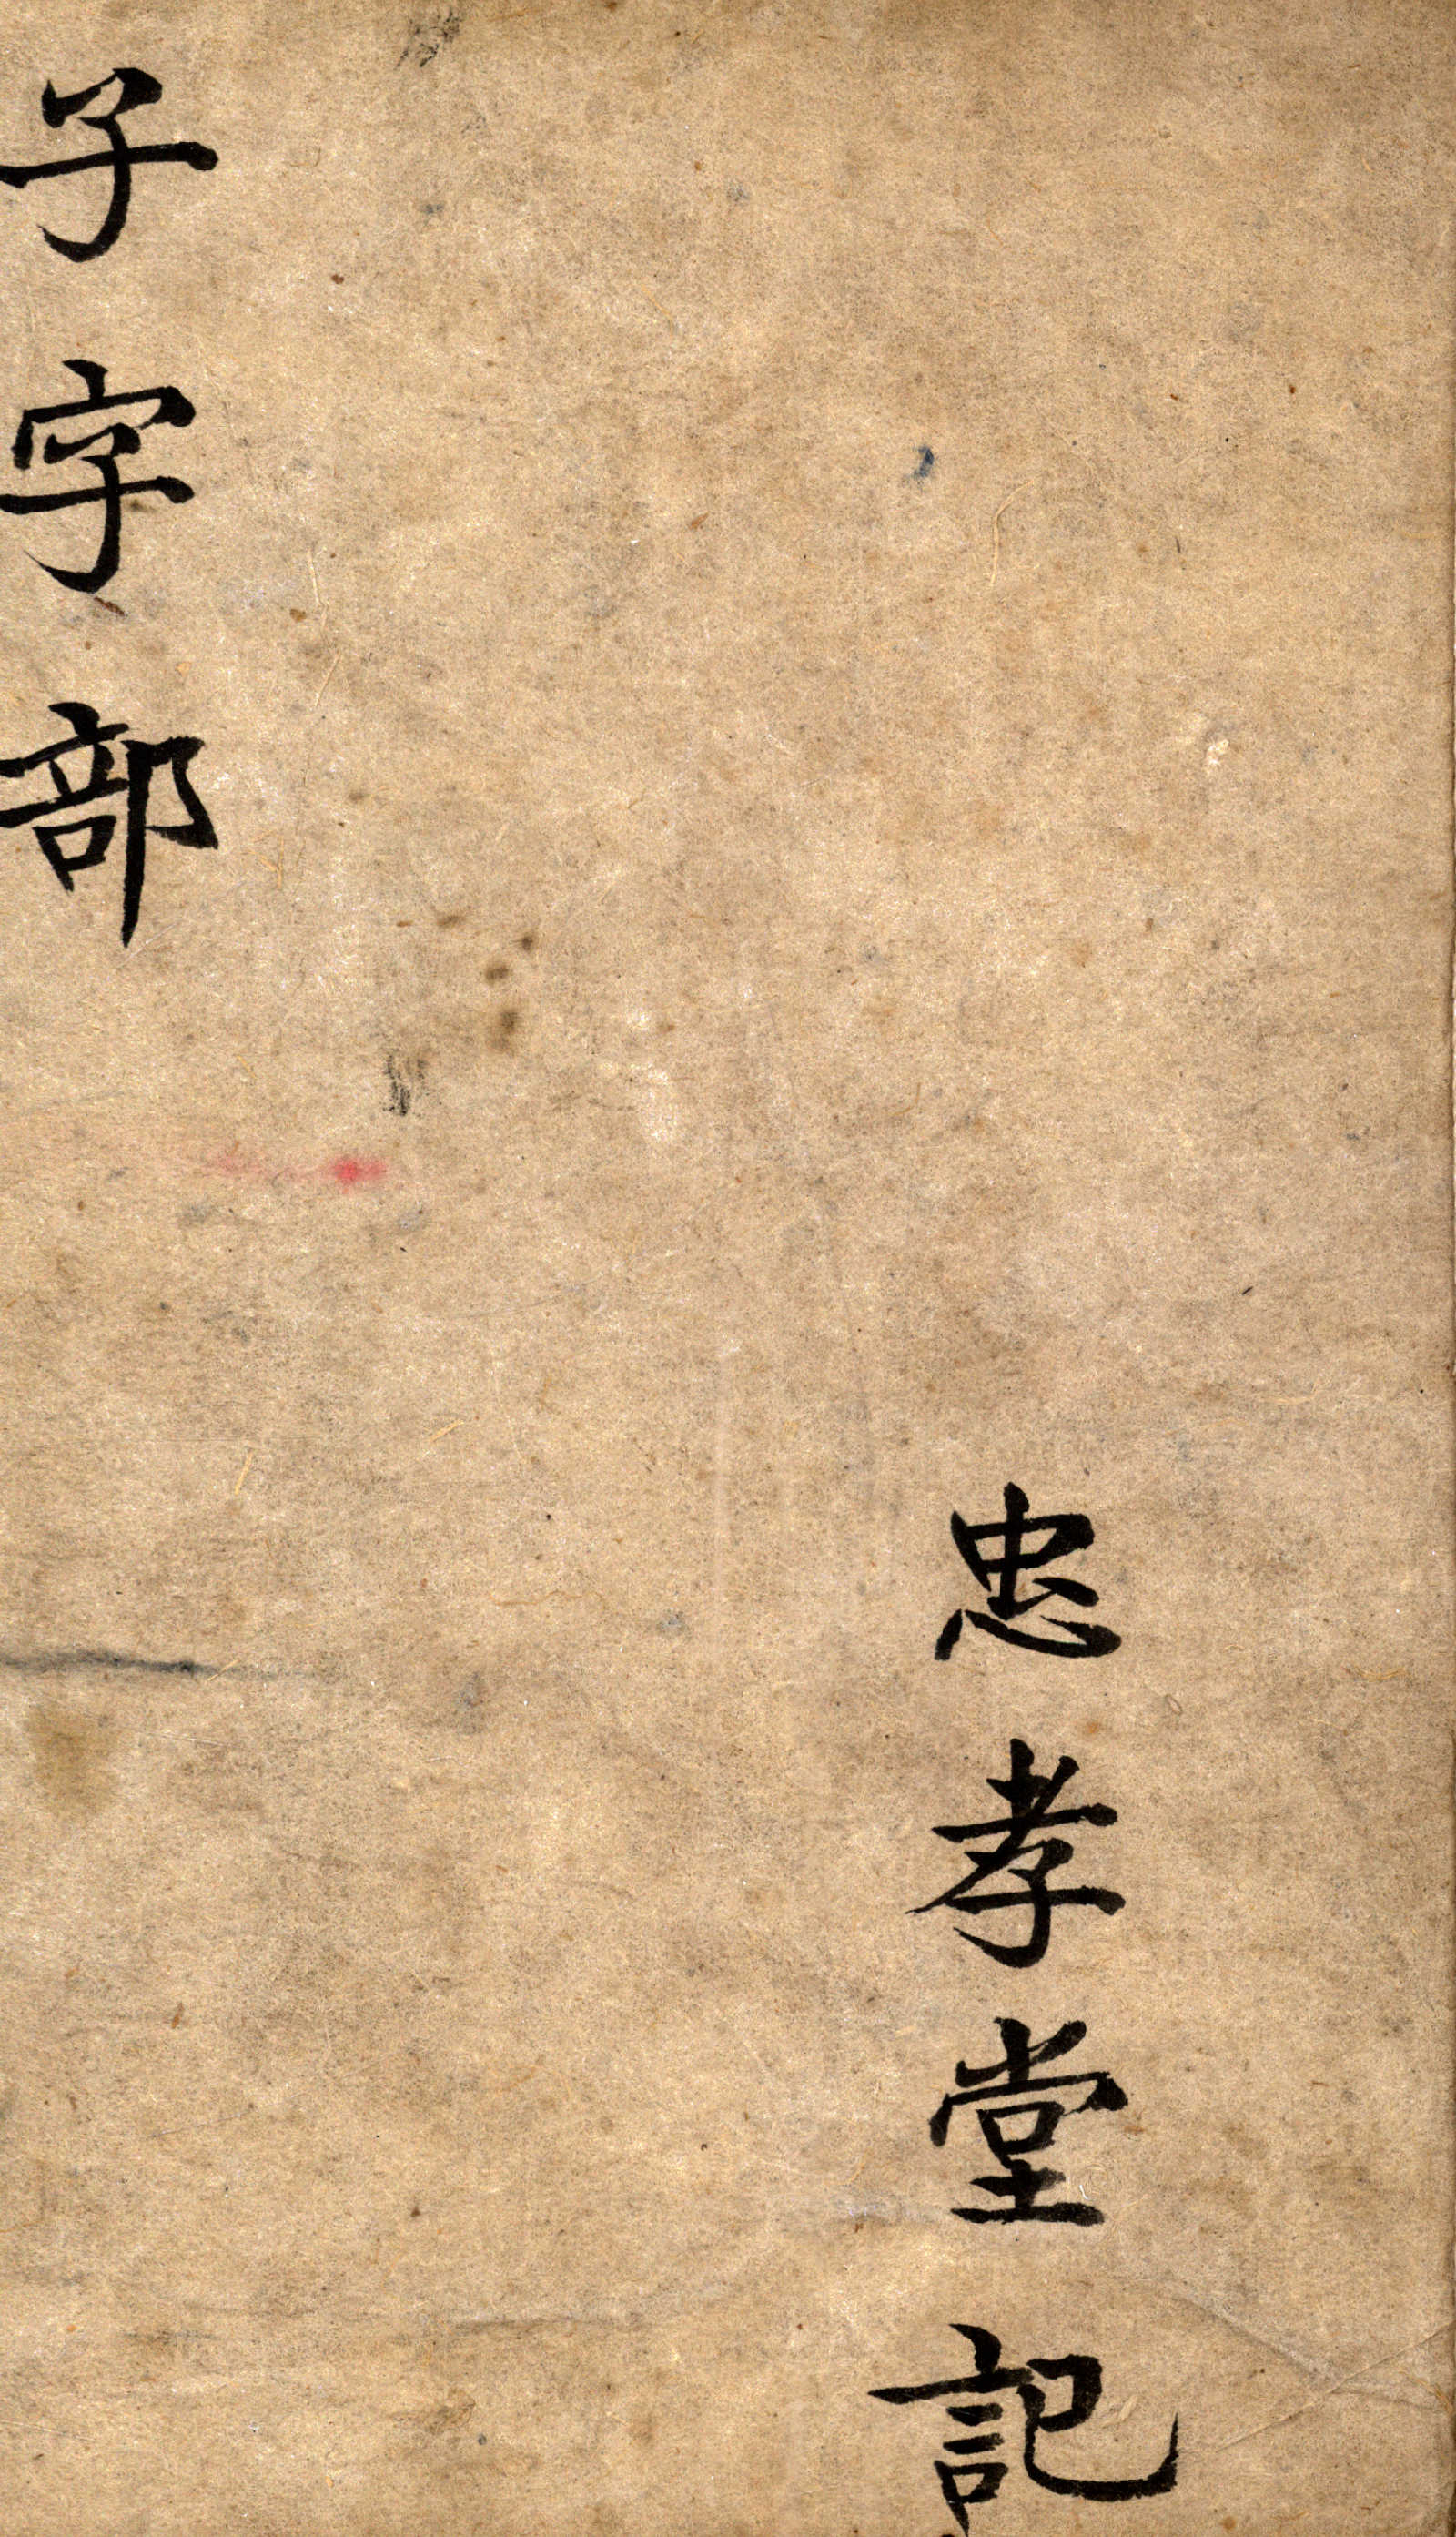 忠孝堂記
子字部